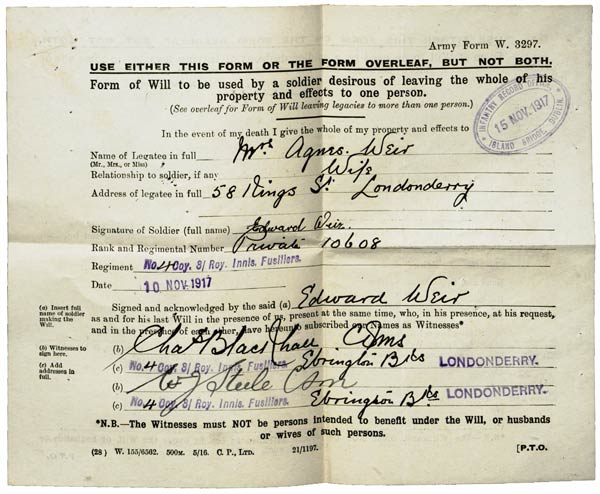 Army Form W. 3297.
USE EITHER THIS FORM OR THE FORM OVERLEAF, BUT NOT BOTH.
Form of Will to be used by a soldier desirous of leaving the whole of his
property and effects to one person.
(See overleaf for Form of Will leaving legacies to more than one person.)
INFANTRY RECORD OFFICE
15 NOV. 1917
ISLAND BRIDGE, DUBLIN.
In the event of my death I give the whole of my property and effects to
Name of Legatee in full Mrs Agnes Weir
(Mr., Mrs., or Miss)
Relationship to soldier, if any Wife
Address of legatee in full 58 Kings St. Londonderry
Signature of Soldier (full name) Edward Weir.
Rank and Regimental Number Private 10608
Regiment No. 4 Coy. 3/ Roy. Innis. Fusiliers.
Date 10 NOV. 1917
(a) Insert full name of soldier making the Will.
Signed and acknowledged by the said (a) Edward Weir
as and for his last Will in the presence of us, present at the same time, who, in his presence, at his request,
and in the presence of each other, have hereunto subscribed our Names as Witnesses*
(b) Witnesses to sign here.
(b) Chas
(c) Add addresses in full.
(c) No. 4 Coy. 3/ Roy. Innis. Fusiliers. Ebrington Bks LONDONDERRY.
(b) Steele
(c) No. 4 Coy. 3/ Roy. Innis. Fusiliers. Ebrington Bks LONDONDERRY.
*N.B.—The Witnesses must NOT be persons intended to benefit under the Will, or husbands
or wives of such persons.
(28) W. 155/6562. 500M. 5/16. C. P., Ltd. 21/1197. [P.T.O.